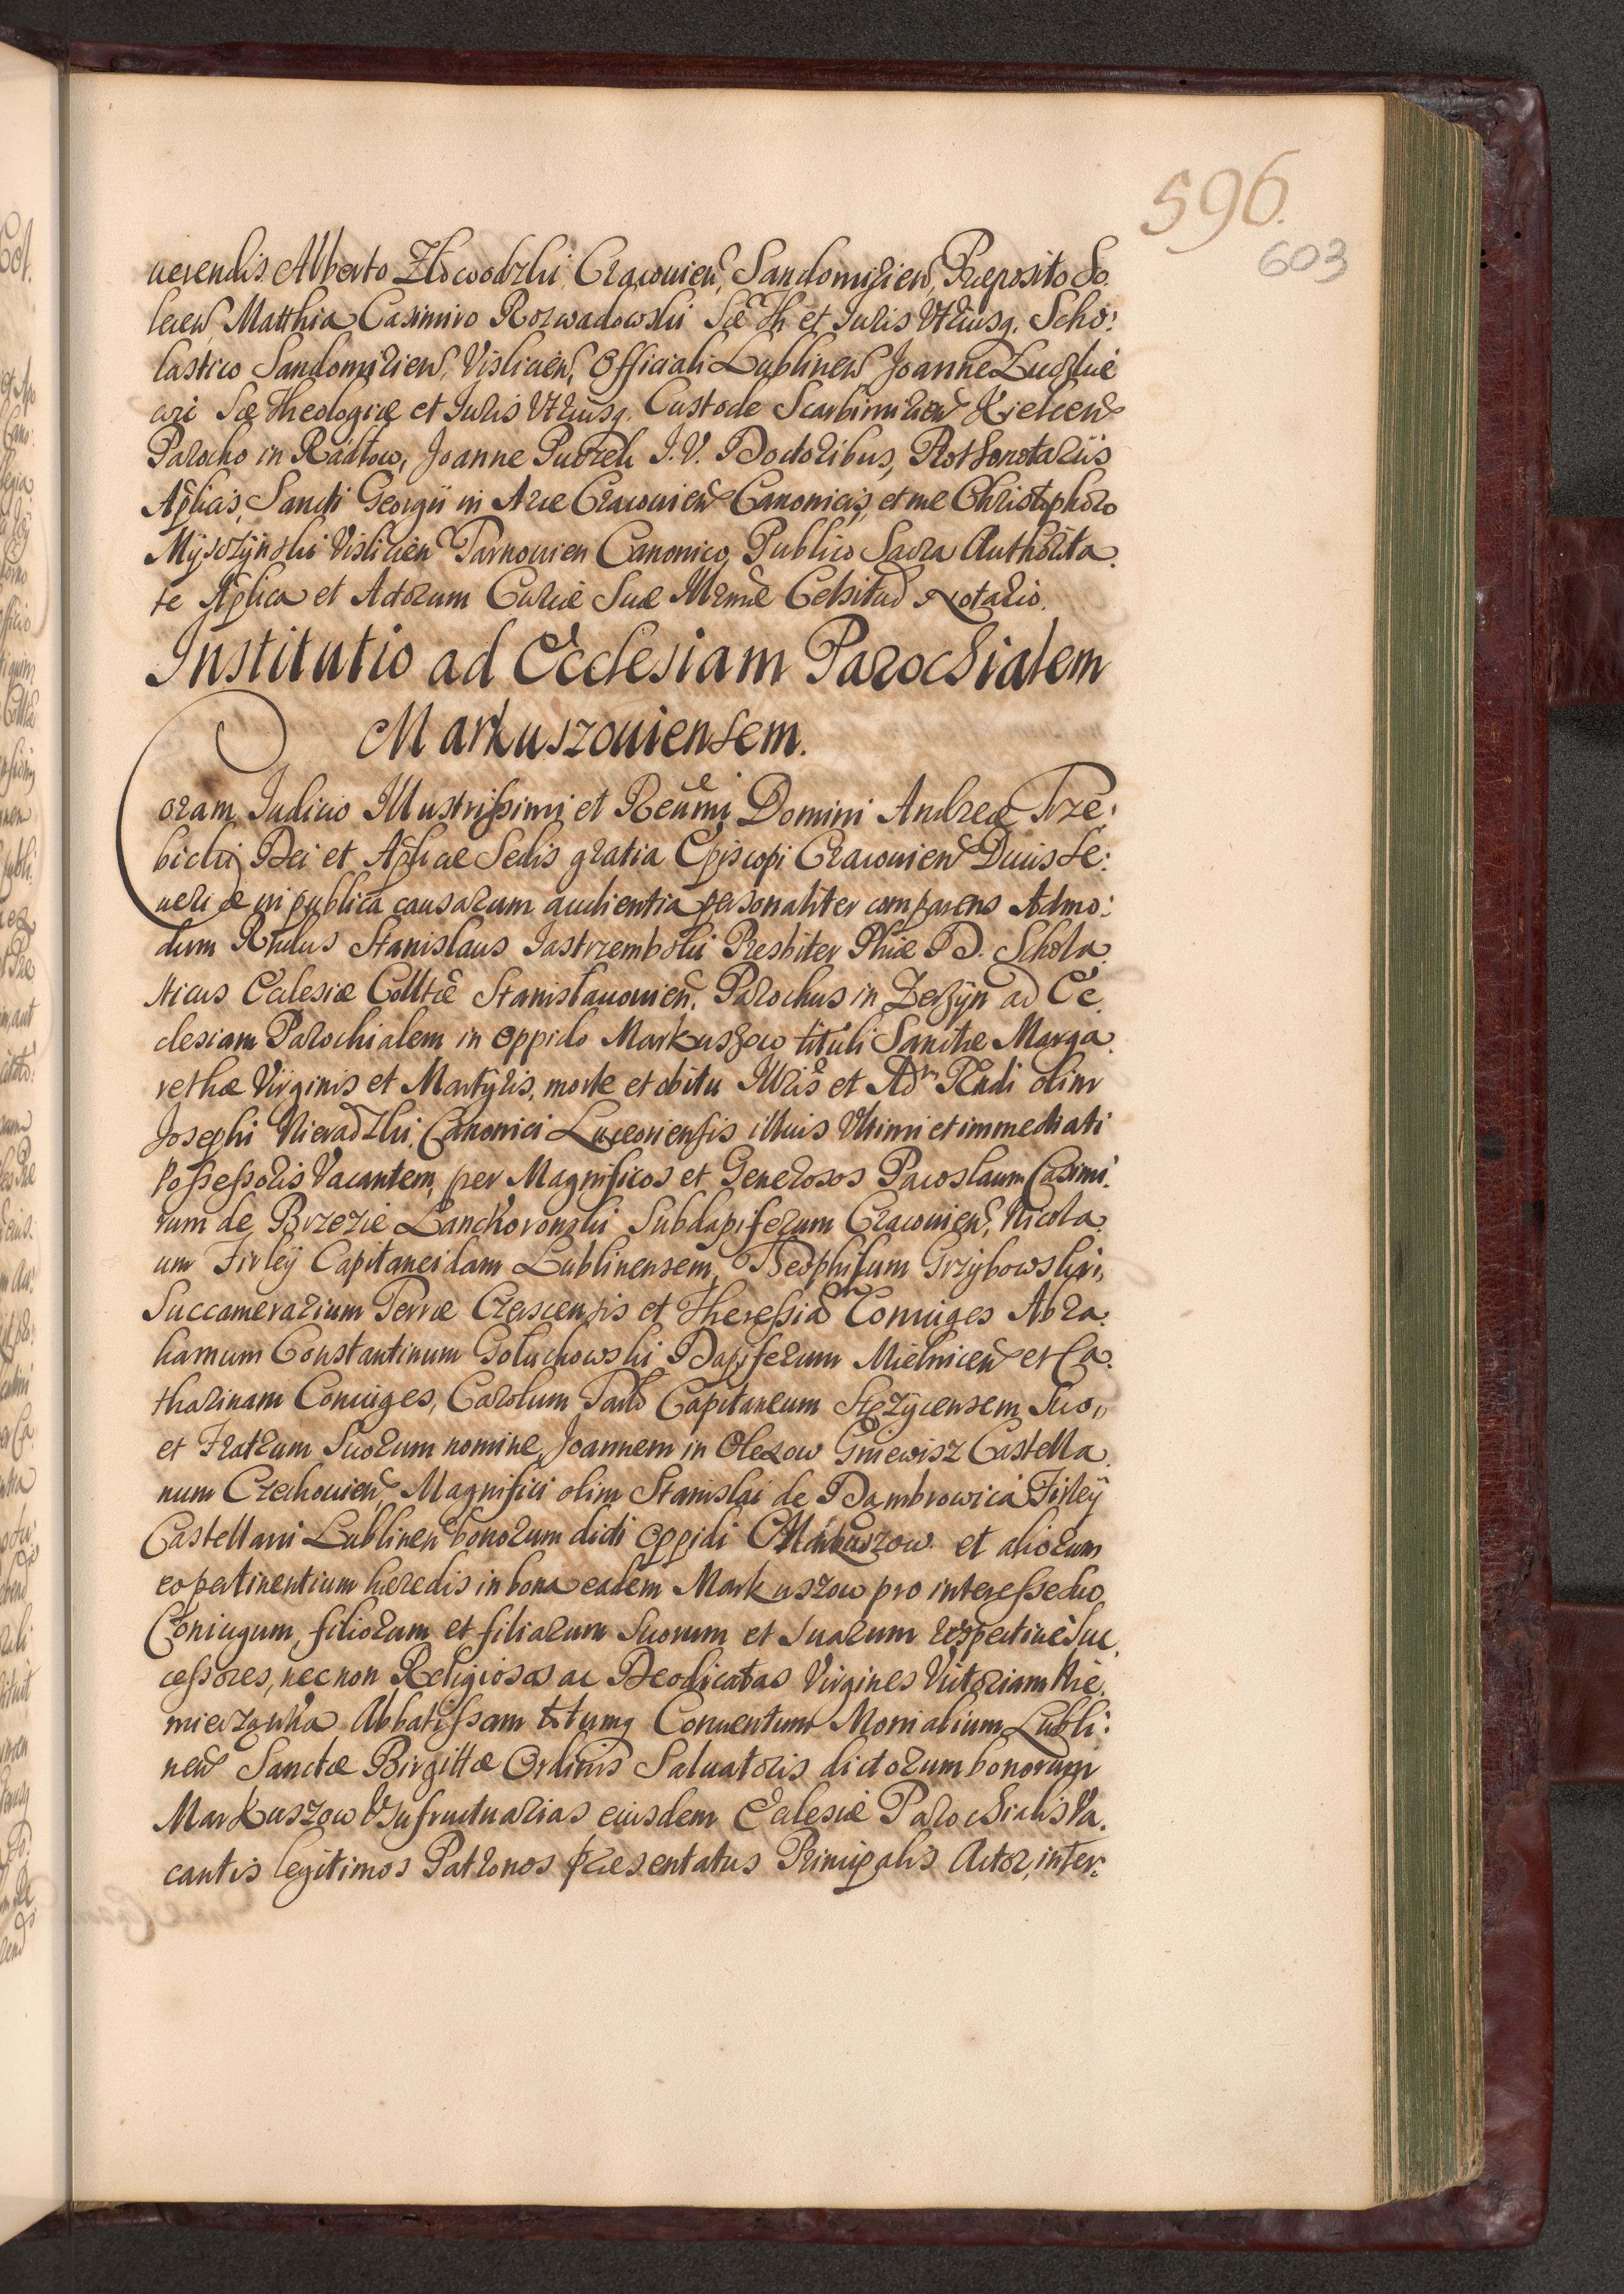 596.
603
uerendis Alberto Złowodzki Cracouien, Sandomirien, Præposito So:
lecen, Matthia Casimiro Rozwadowski Sæ Th et Iuris Vtriusq. Scho:
lastico Sandomirien, Vislicien, Officiali Lublinen Joanne
Sæ Theologiæ et Iuris Vtriusq. Custode Scarbimirien Kielcen
Parocho in Radłow, Joanne Pudzek I. V. Doctoribus, Prothonotariis
Aplicis, Sancti Georgii in Arce Cracouien Canonicis, et me Christophoro
Mÿszÿnski Vislicien Tarnouien Canonico, Publico Sacra Authorita
te Aplica et Actorum Curiæ Suæ Illrmæ Celsitud Notario.
Institutio ad Ecclesiam Parochialem
Markuszouiensem.
Coram Iudicio Illustrissimi et Reumi Domini Andreæ Trze:
bicki Dei et Aplicæ Sedis gratia Episcopi Cracouien Ducis Se:
ueriæ in publica causarum audientia personaliter comparens Admo:
dum Rndus Stanislaus Jastrzembski Presbiter Phiæ D. Schola
sticus Ecclesiæ Colltæ Stanislauouien. Parochus in Zerzÿn ad Ec
clesiam Parochialem in oppido Markuszow tituli Sanctæ Marga
rethæ Virginis et Martÿris, morte et obitu Illris et Adm Rndi olim
Josephi Nieradzki, Canonici Luceoriensis illius Vltimi et immediati
Possessoris Vacantem, per Magnificos et Generosos Pacoslaum Casimi
rum de Brzezie Lanckoronski Subdapiferum Cracouien, Nicola
um Firleÿ Capitaneidam Lublinensem, Theophilum Grzÿbowski,
Succamerarium Terræ Cerscensis et Theressiam Coniuges Abra
hamum Constantinum Goluchowski Dapiferum Mielnicen et Ca
tharinam Coniuges, Carolum Tarło Capitaneum Stezÿcensem Suo,
et Fratrum Suorum nomine, Joannem in Olexow Gniewisz Castella
num Czechouien, Magnifici olim Stanislai de Dambrowica Firleÿ
Castellani Lublinen bonorum dicti oppidi Markuszow et aliorum
eo pertinentium hæredis in bona eadem Markuszow pro interesse suo
Coniugum, filiorum et filiarum Suorum et Suarum respectiue Suc
cessores, nec non Religiosas ac Deodicatas Virgines Victoriam Nie
mierzanka Abbatissam totumq Conuentum Monialium Lubli:
nen Sanctæ Birgittæ Ordinis Saluatoris dictorum bonorum
Markuszow Vsufructuarias eiusdem Ecclesiæ Parochialis Va
cantis legitimos Patronos præsentatus Principalis Actor, inter: